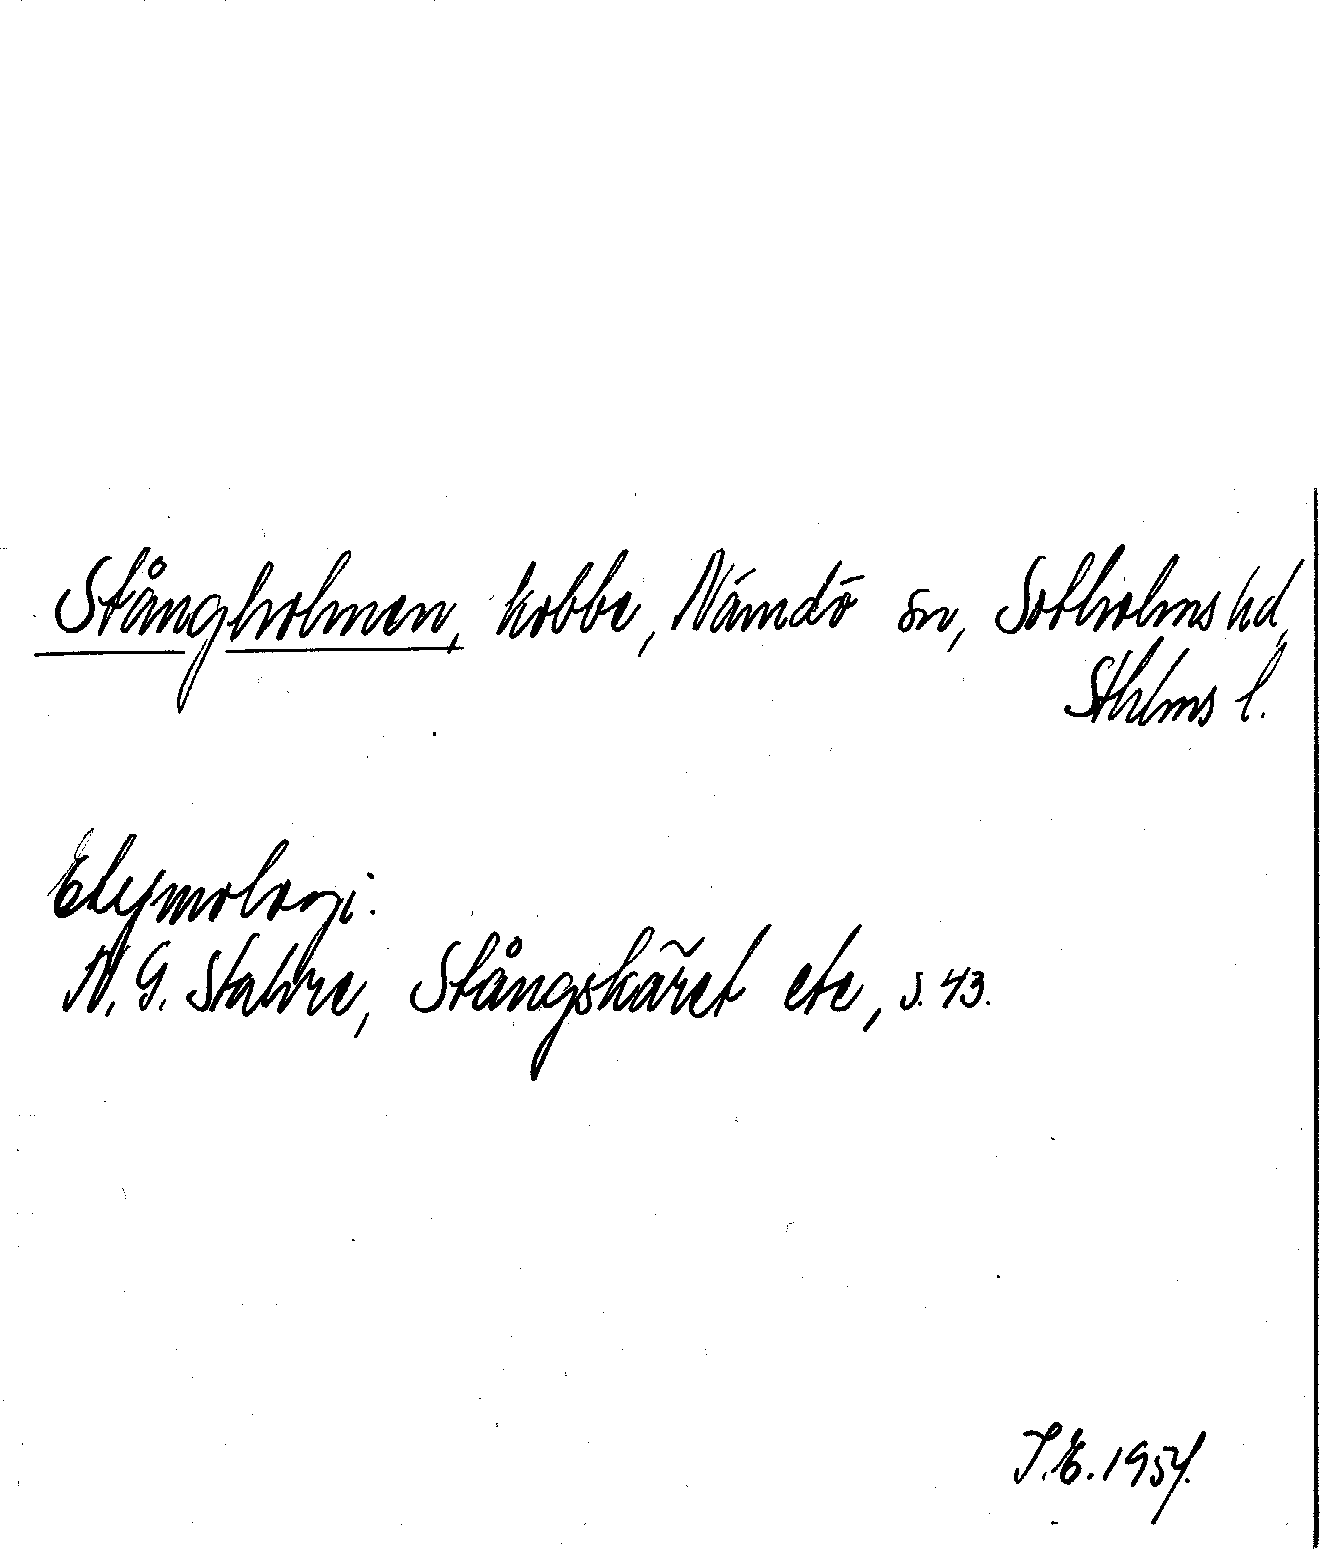 Stångholmen, kobbe, Nämdö sn, Sotholms hd,
Sthlms l.
Etymologi:
N. G. Stahre, Stångskäret etc, s. 43.
I.E. 1954.